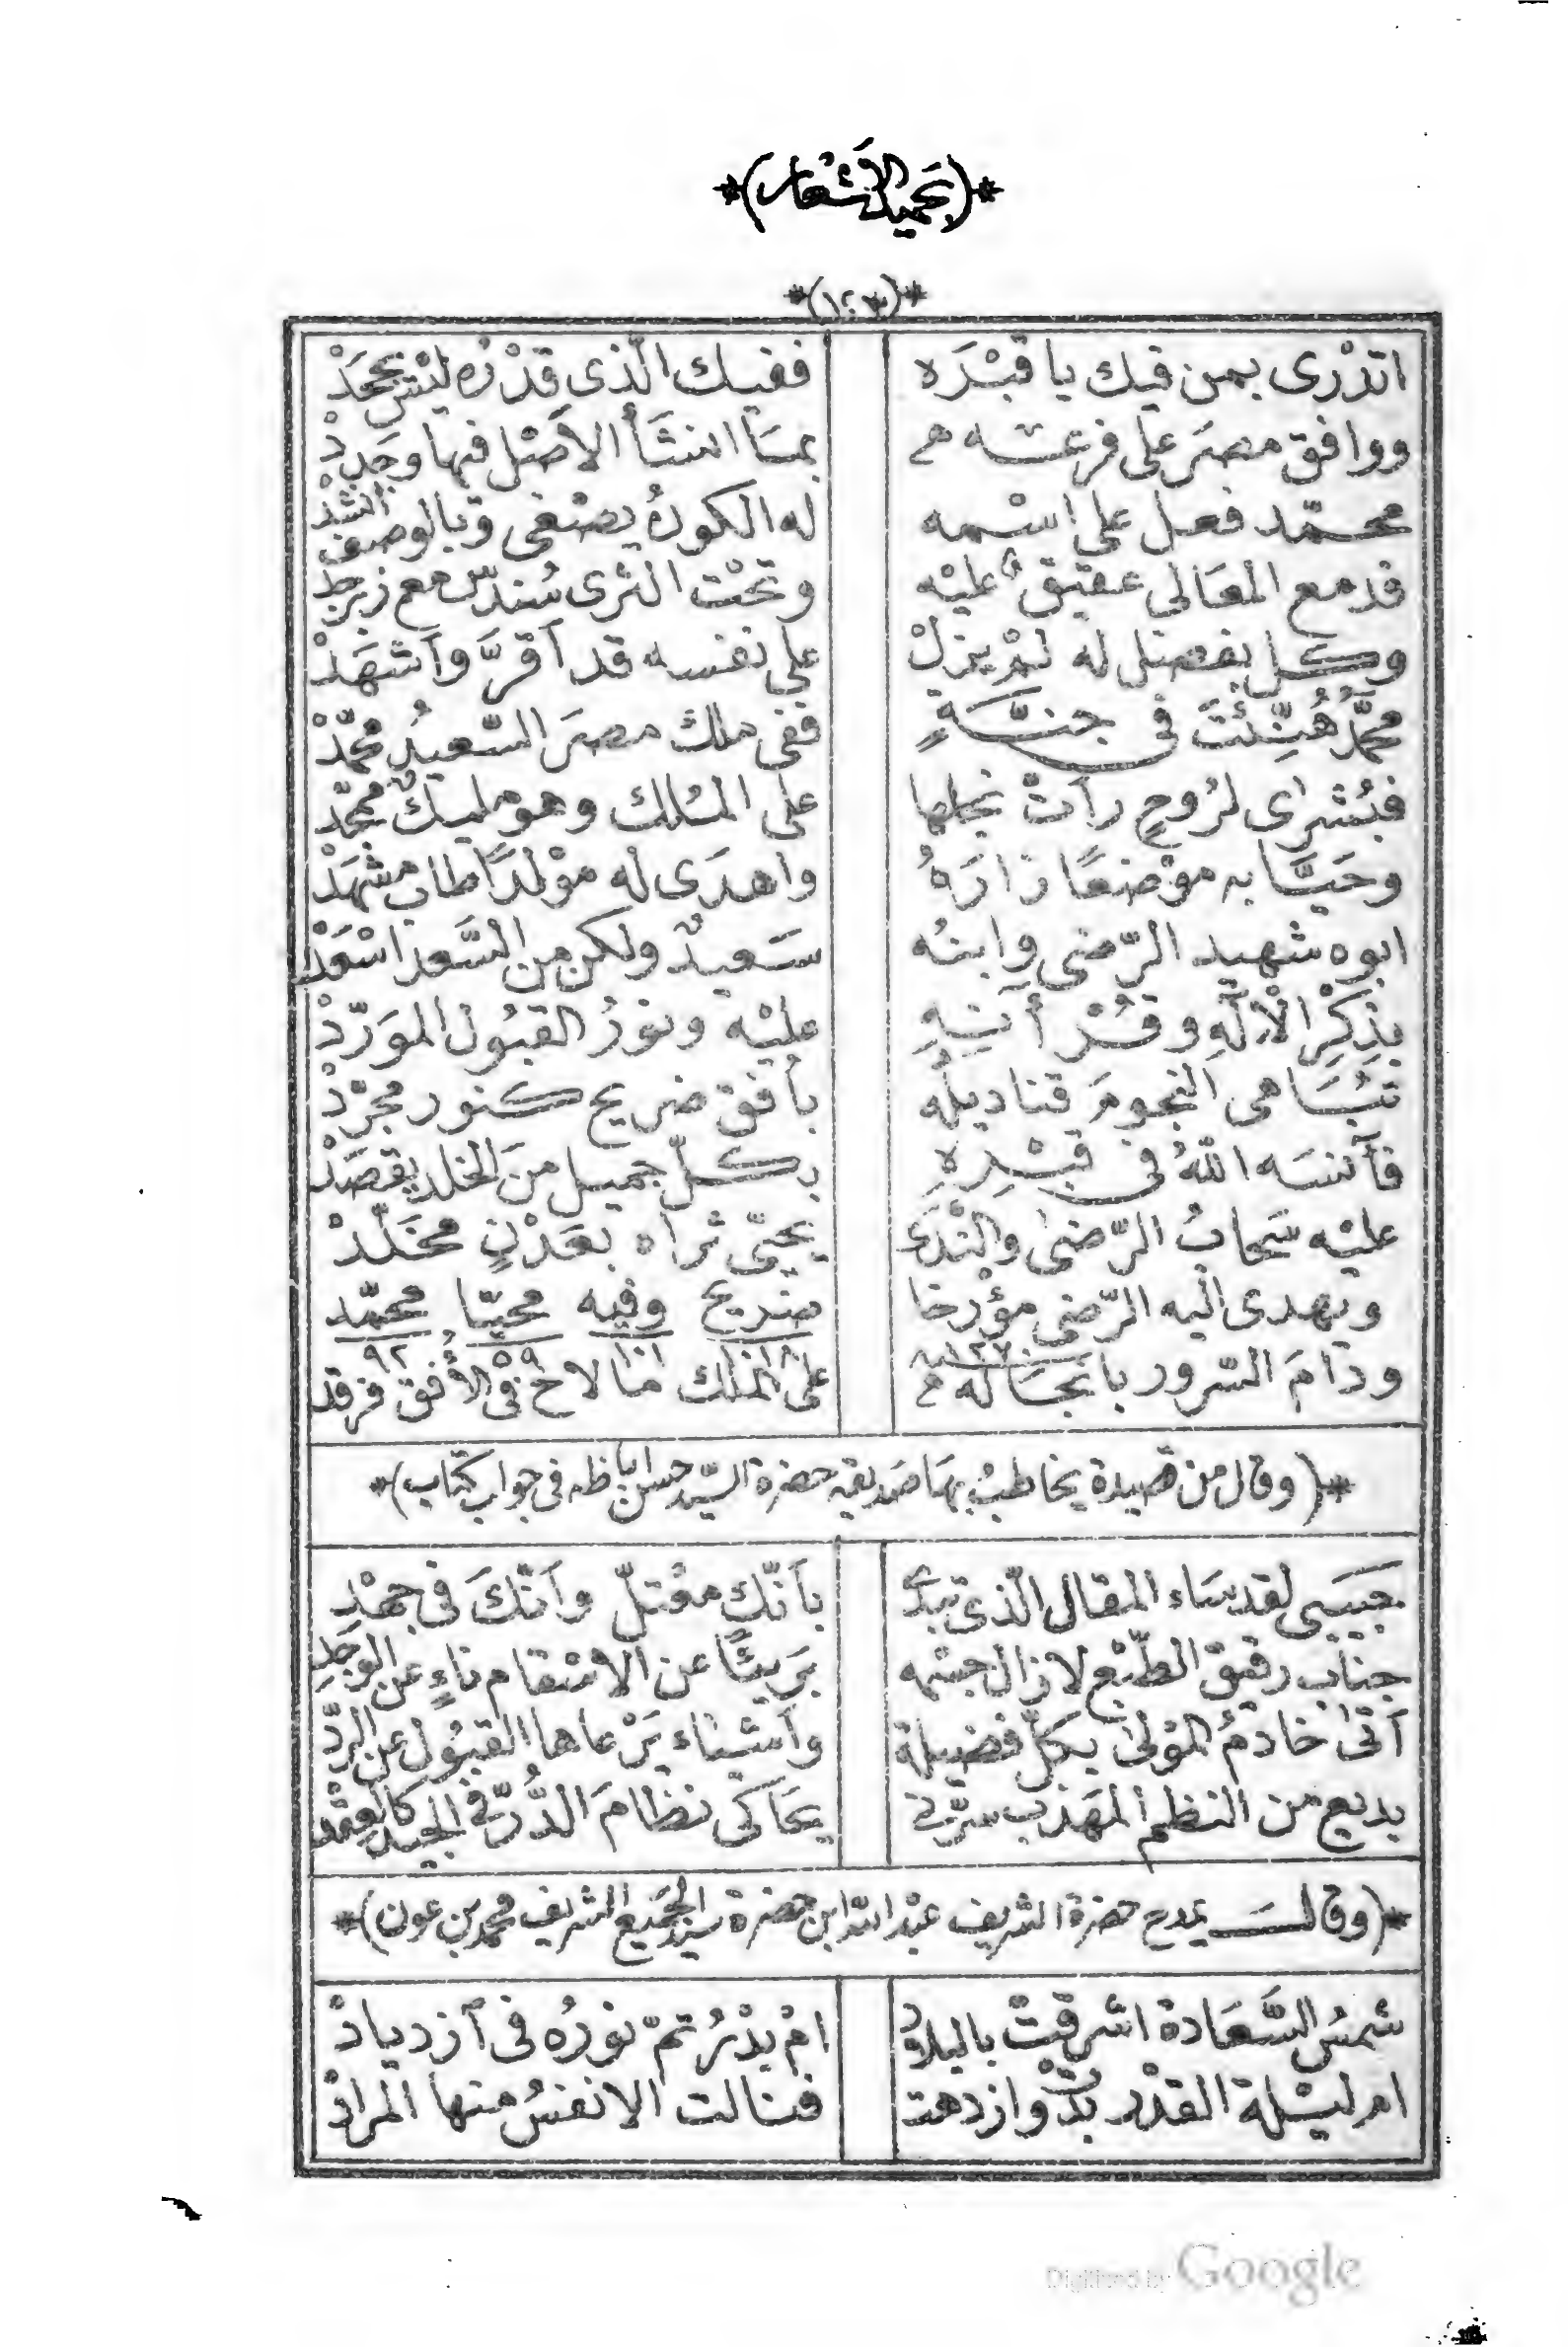 *(بحميد الأشعار)*
*(١٤٣)*
اتدْرى بمن فيك يا قبْرَه ففيك الّذى قدْرُه ليْس يجحَدْ
ووافق مصرَ على فرعه بمَا انشَأ الأصْل فيها وجَددْ
محمّد فعل على اسْمه له الكون يصْغى وبالوصف انشدْ
قد مع المعَالى عقيق عليْه وتحْت الثرى سُندس مع زبرجدْ
وكل بفضل له لمْ يزلْ على نفسه قد أقرَّ وأشهَدْ
محمَّدُ هُنِّئْتَ فى جنَّةٍ ففى ملك مصرَ السّعيدُ محمّدْ
فبُشرٰى لرُوحٍ رأتْ نجلها على المُلك وهو مليكٌ ممجّدْ
وحَيَّا به موْضعًا زارَهُ واهدَى له موْلدًا طاب مشهَدْ
ابوه شهيد الرّضى وابنُه سَعيدٌ ولكن من السَّعد اسْعَدْ
بذِكْرِ الْإلٓهِ وقُرْأنِهِ عليْه ونورُ القبُول الموَرّدْ
تُسَامى النجومَ قناديلُه بأفق ضريح كنور مجرّدْ
فآنسَه اللّٰهُ فى قبْرِهِ بكلّ جميل منَ الخلد يقصَدْ
عليْه سَحابُ الرّضىٰ والنّدَى يحيّى ثراه بعَدْنٍ مخَلّدْ
ويهدى اليه الرّضى مؤرّخا ضريح وفيه محيّا محمّد
١٢٧٠ ١٠١٨ ١٠١ ٥٩ ٩٢
ودَامَ السّرور بانجَاله على الملك مَا لاحَ فى الأُفق فرقد
*(وقال من قصيدة يخاطبُ بهَا صَديقه حضرة السّيد حسن اباظه فى جواب كتاب)*
حَبيبى لقد سَاء المقال الّذى تبدّى بأنّك معْتلّ وأنّكَ فى جهْدِ
جنَاب رقيق الطّبْع لا زال جسْمه بَريئًا عن الاسْقام ناءٍ عن الوجْدِ
أتىٰ خادمُ المْولىٰ بكلّ فضيلة وأشيَاء يَرْعاها القبُول عن الردّ
بديع من النظم المهَذب سرّنى يحَاكى نظامَ الدُّرّ فى الجيد كالعِقْد
*(وقال يمدح حضرة الشريف عبْد اللّه ابن حضرة سيّد الجَميع الشريف محمّد بن عون)*
شمسُ السَّعَادة اشرقتْ بالبلادْ امْ بدْرُ تمّ نورُه فى ٱزديادْ
ام ليْلة القدْر بدَتْ وازدهت فنالت الانفسُ منها المرادْ
Digitized by Google